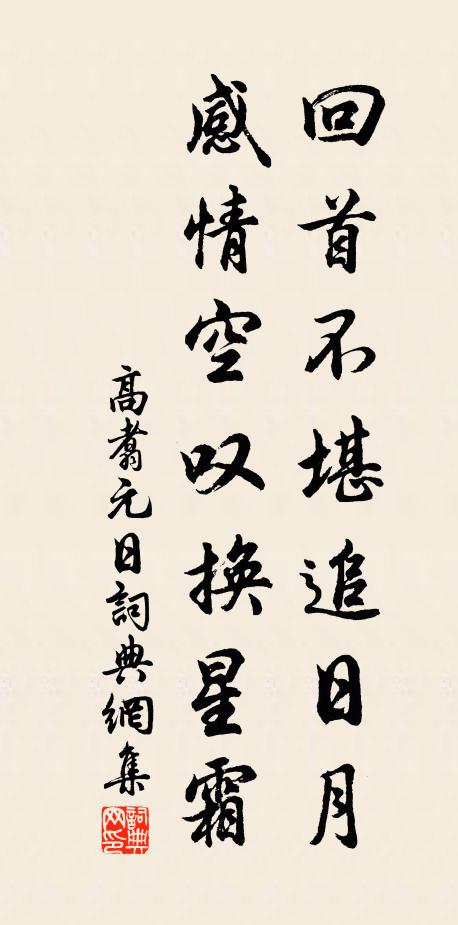 回首不堪追日月
感情空叹換星霜
高翥元日詞典網集
詞典网印